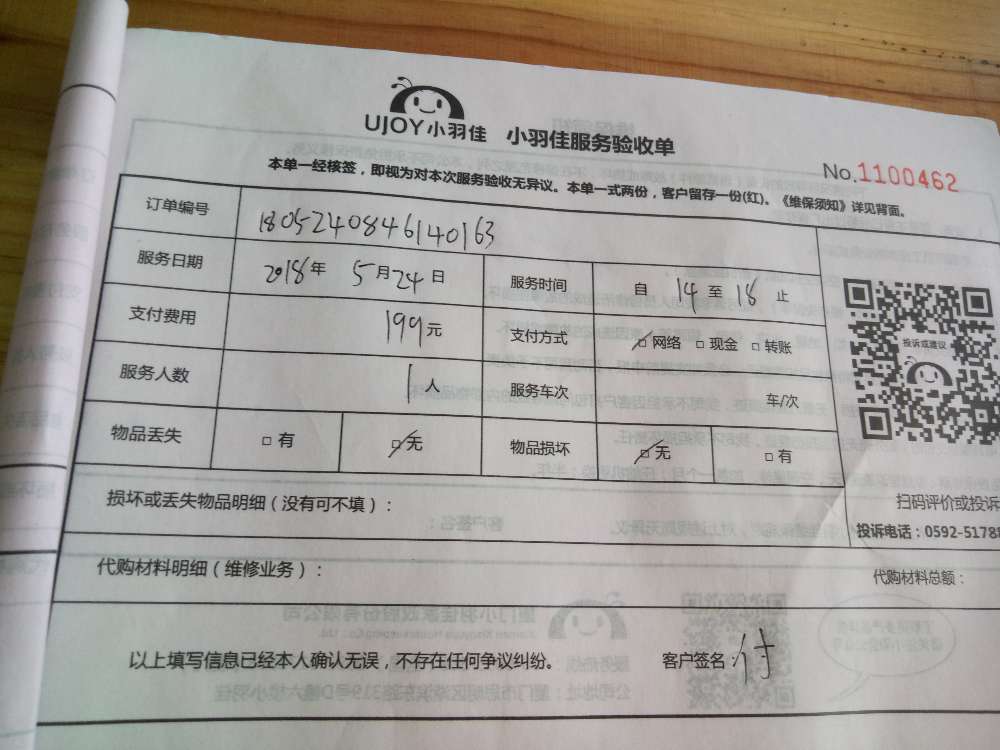 UJOY小羽佳 小羽佳服务验收单
No.1100462
本单一经核签，即视为对本次服务验收无异议。本单一式两份，客户留存一份(红)。《维保须知》详见背面。
订单编号 1805240846140163
服务日期 2018年 5月24日 服务时间 自 14 至 18 止
支付费用 199元 支付方式 □网络 □现金 □转账
投诉或建议
服务人数 1人 服务车次 车/次
物品丢失 □有 □无 物品损坏 □无 □有
损坏或丢失物品明细（没有可不填）：
扫码评价或投诉
投诉电话：0592-5178
代购材料明细（维修业务）：
代购材料总额：
以上填写信息已经本人确认无误，不存在任何争议纠纷。 客户签名：付